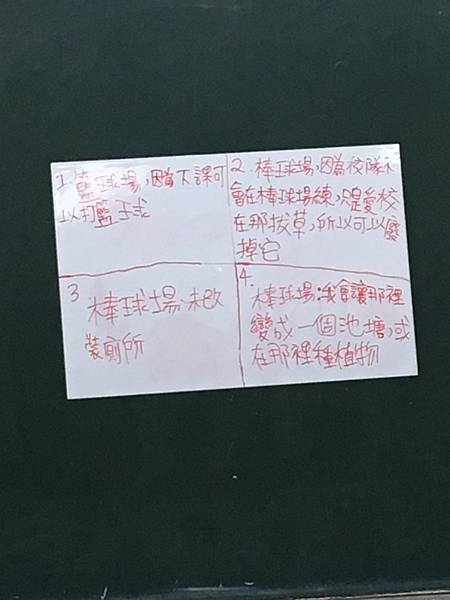 1. 籃球場,因為下課可
以打籃球
2. 棒球場,因為校隊不
會在棒球場練,只是愛校
在那拔草,所以可以廢
掉它
3 棒球場、未改
裝廁所
4.
棒球場:我會讓那裡
變成一個池塘,或
在那裡種植物